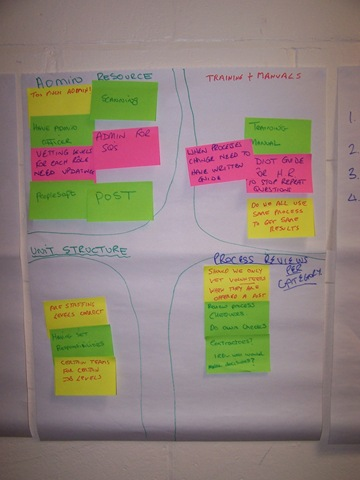 ADMIN RESOURCE
TOO MUCH ADMIN!
SCANNING
HAVE ADMIN
OFFICER
ADMIN FOR
SOS
VETTING LEVELS
FOR EACH ROLE
NEED UPDATING
PEOPLESOFT
POST
TRAINING + MANUALS
TRAINING
MANUAL
WHEN PROCESS
CHANGE NEED TO
HAVE WRITTEN
GUIDE
IDIOT GUIDE
FOR HR
TO STOP REPEAT
QUESTIONS
DO WE ALL USE
SAME PROCESS
TO GET SAME
RESULTS
UNIT STRUCTURE
ARE STAFFING
LEVELS CORRECT
HAVING SET
RESPONSIBILITIES
CERTAIN TEAMS
FOR CERTAIN
JOB LEVELS
PROCESS REVIEWS
PER
CATEGORY
SHOULD WE ONLY
VET VOLUNTEERS
WHEN THEY ARE
OFFERED A POST
REVIEW PROCESS
CHECKLISTS
CONTRACTORS?
1.
2
3.
4.